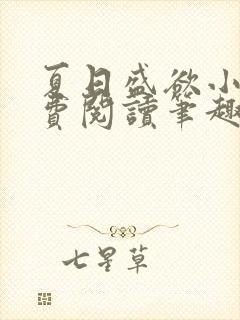 夏日盛欲小
費閱讀筆趣
七星草